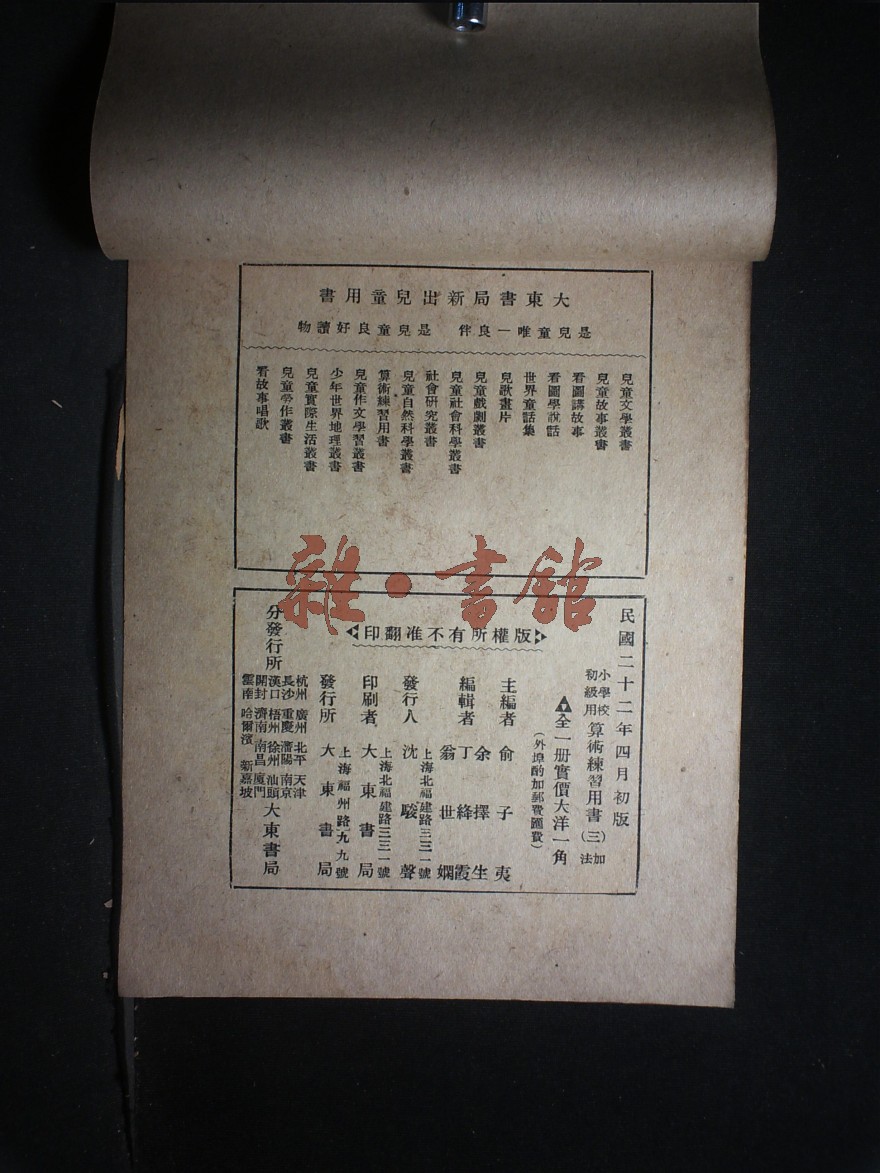 大東書局新出兒童用書
是兒童唯一良伴　是兒童良好讀物
兒童文學叢書
兒童故事叢書
看圖講故事
看圖學說話
世界童話集
兒歌畫片
兒童戲劇叢書
兒童社會科學叢書
社會研究叢書
兒童自然科學叢書
算術練習用書
兒童作文學習叢書
少年世界地理叢書
兒童實際生活叢書
兒童勞作叢書
看故事唱歌
雜·書館
民國二十二年四月初版
小學校初級用 算術練習用書（三）加法
全一册實價大洋一角
（外埠酌加郵費匯費）
版權所有不准翻印
主編者 俞子夷
編輯者 余擇生
丁絳霞
翁世嫻
發行人 沈駿聲
上海北福建路三三一號
印刷者 大東書局
上海北福建路三三一號
發行所 大東書局
上海福州路一九九號
分發行所
杭州 廣州 北平 天津
長沙 重慶 瀋陽 南京
漢口 梧州 徐州 汕頭
開封 濟南 南昌 廈門
雲南 哈爾濱 新嘉坡
大東書局